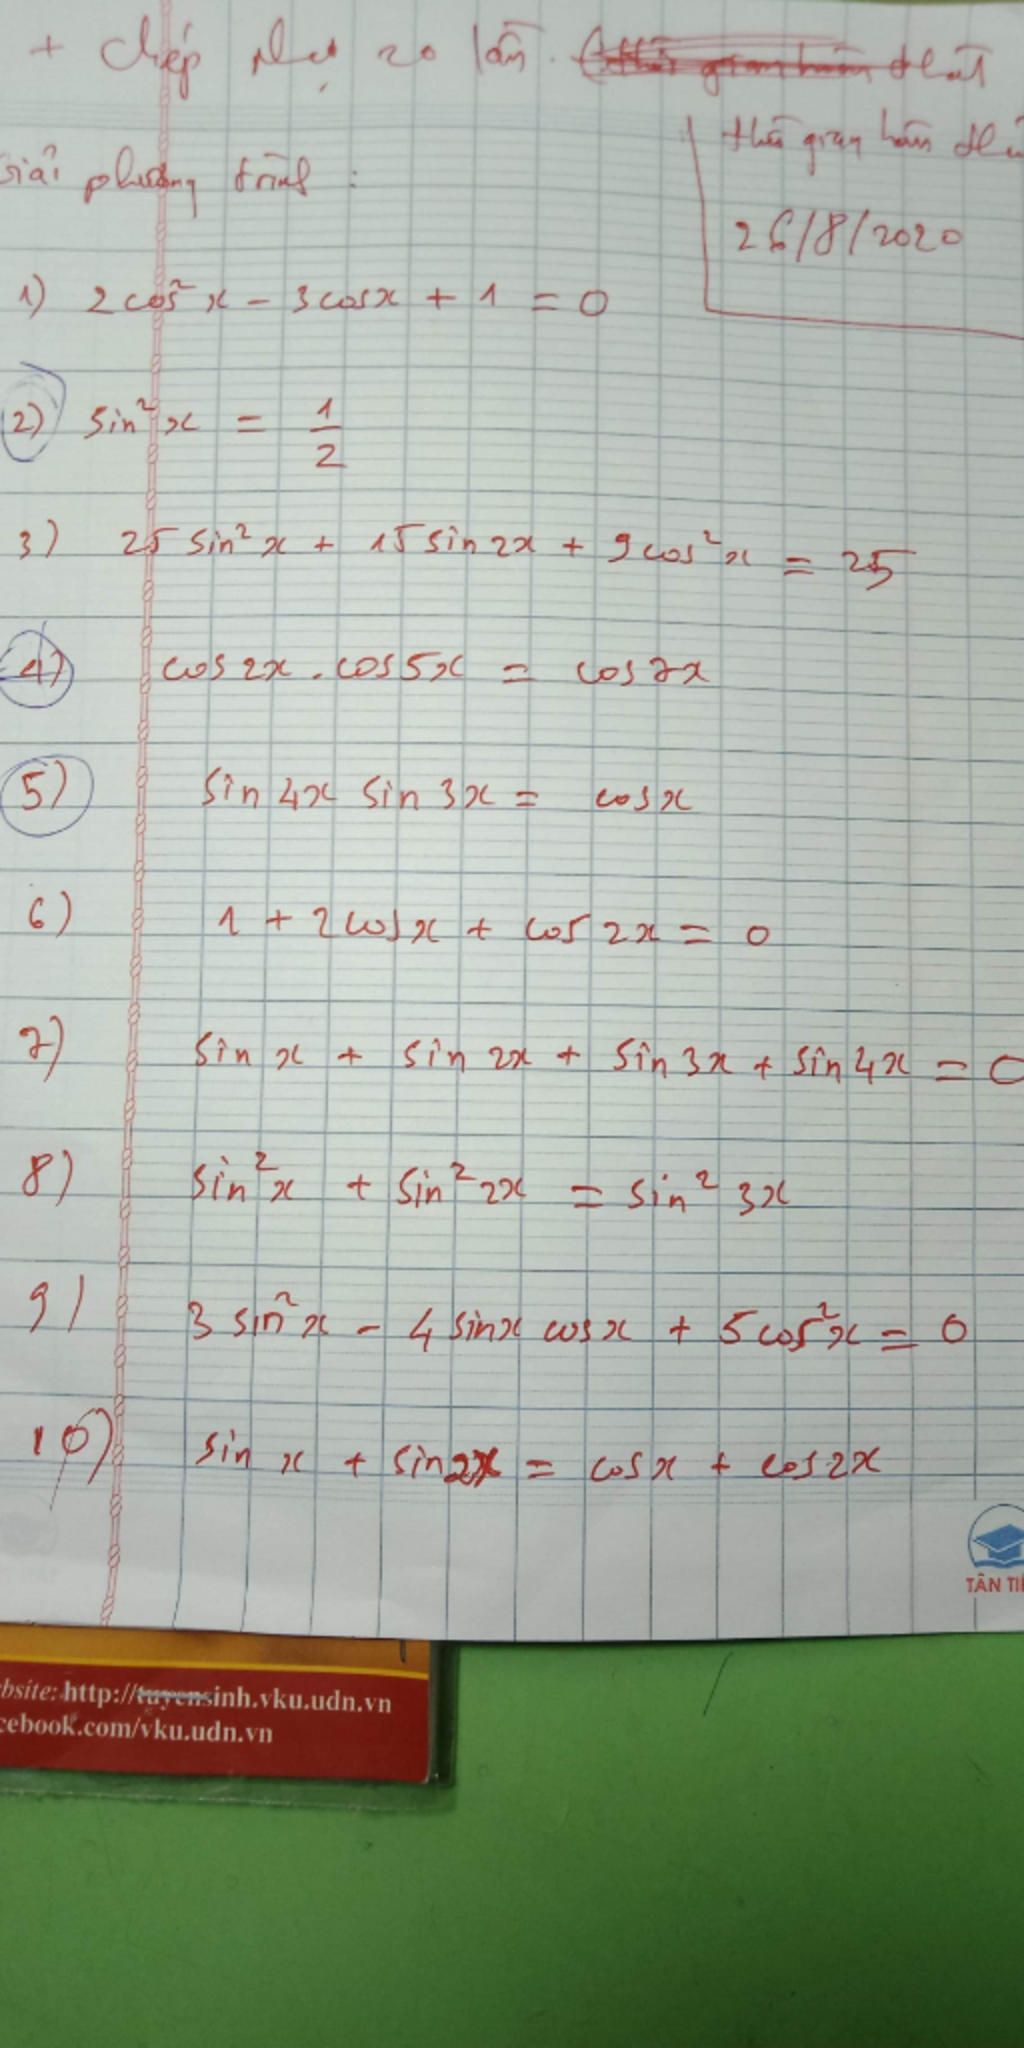 + chép phạt 20 lần.
thời gian hoàn
Giải phương trình :
26/8/2020
1) 2cos²x - 3cosx + 1 = 0
2) sin²x = 1/2
3) 25 sin²x + 15 sin 2x + 9 cos²x = 25
4) cos 2x . cos 5x = cos 7x
5) sin 4x sin 3x = cos x
6) 1 + 2cosx + cos 2x = 0
7) sin x + sin 2x + sin 3x + sin 4x = 0
8) sin²x + sin² 2x = sin² 3x
9) 3 sin²x - 4 sinx cosx + 5 cos²x = 0
10) sin x + sin 2x = cosx + cos 2x
TÂN TIẾ
bsite: http://tuyensinh.vku.udn.vn
cebook.com/vku.udn.vn